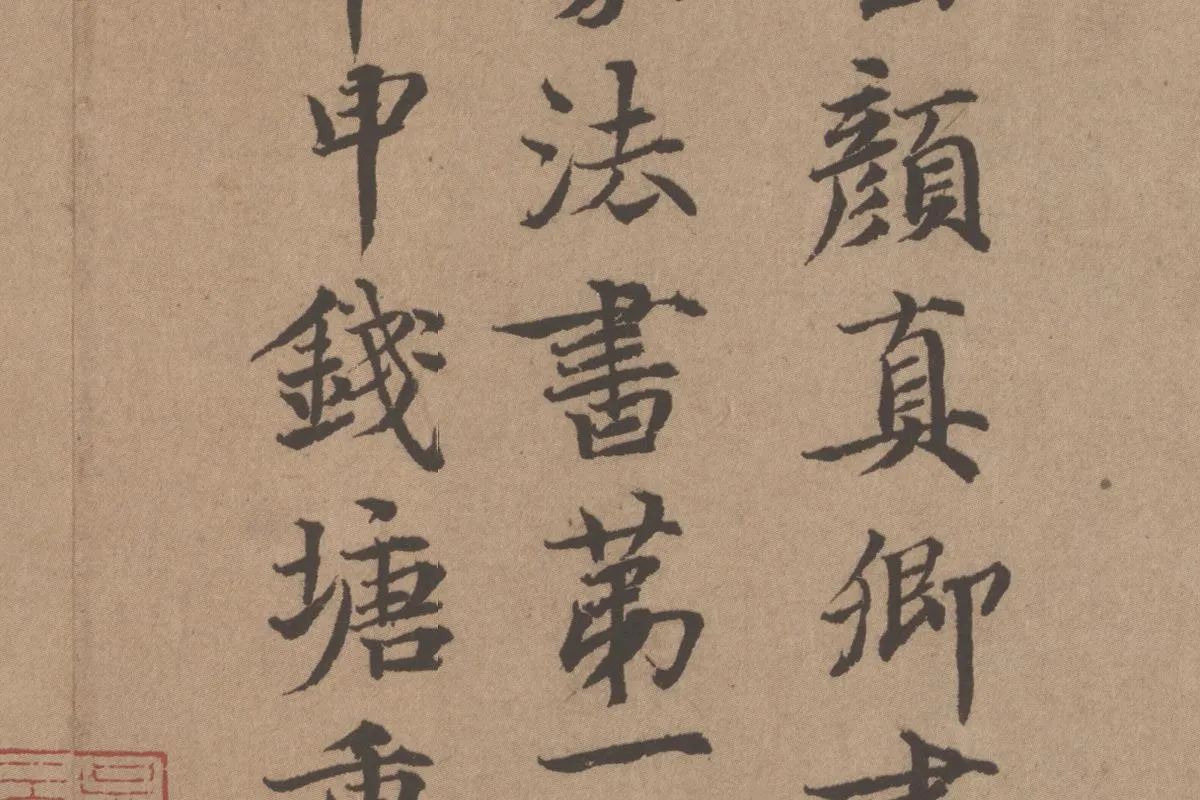 顏真卿書
法書第一
申錢塘重